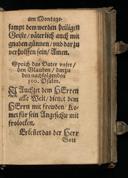 am Montage.
sampt dem werden heiligen
Geiste / väterlich auch mit
gnaden günnen / und dar zu
verholffen sein / Amen.
Sprich das Vater unser /
den Glauben / darzu
den nachfolgenden
100. Psalm.
Jauchzet dem HErrn
alle Welt / dienet dem
HErrn mit freuden / Ko-
met für sein Angesichte mit
frolocken.
Erkennet das der Herr
Gott